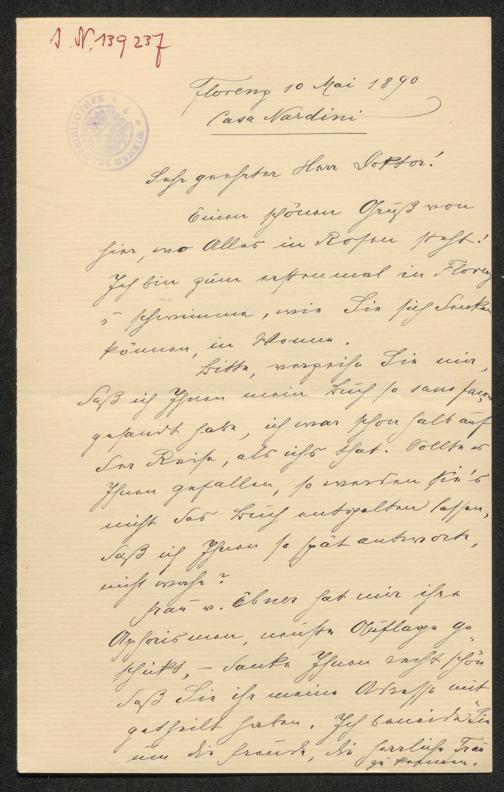 I. N. 139237
WIENER STADTBIBLIOTHEK
Florenz 10 Mai 1890
Casa Nardini
Sehr geehrter Herr Doktor!
Einen schönen Gruß von
hier, wo Alles in Rosen steht!
Ich bin zum erstenmal in Florenz
u schwimme, wie Sie sich denken
können, in Wonne.
Bitte, verzeihe Sie mir,
daß ich Ihnen mein Buch so sans façon
gesandt habe, ich war schon halb auf
der Reise, als ichs that. Sollte es
Ihnen gefallen, so werden Sie's
nicht das Buch entgelten lassen,
daß ich Ihnen so spät antworte,
nicht wahr?
Frau v. Ebner hat mir ihre
Aphorismen, neuste Auflage ge
schickt, – danke Ihnen recht schön
daß Sie ihr meine Adresse mit
getheilt haben. Ich beneide Sie
um die Freude, die herrliche Frau
zu kennen.